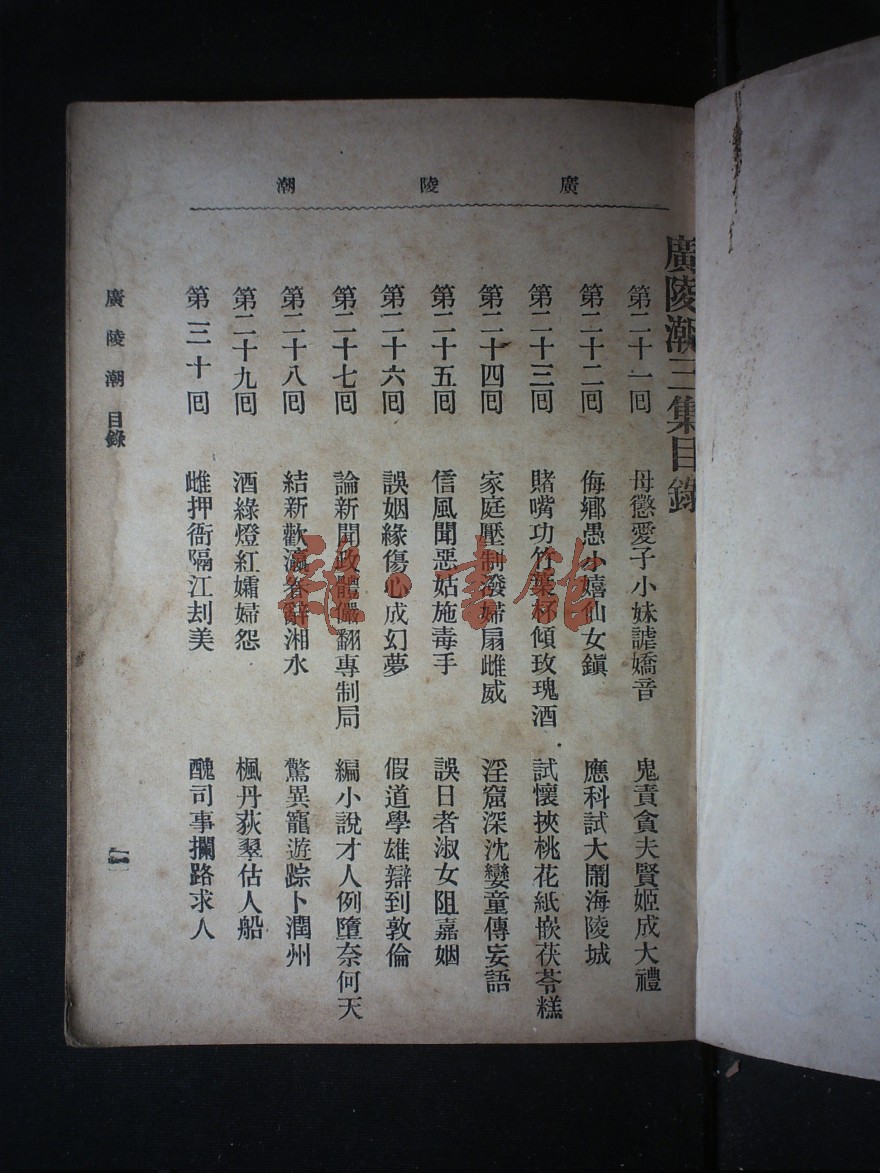 廣陵潮
廣陵潮三集目錄
第二十一回 母懲愛子小妹謔嬌音 鬼責貪夫賢姬成大禮
第二十二回 侮鄉愚小嬉仙女鎭 應科試大鬧海陵城
第二十三回 賭嘴功竹葉杯傾玫瑰酒 試懷挾桃花紙嵌茯苓糕
第二十四回 家庭壓制潑婦扇雌威 淫窟深沈孌童傳妄語
第二十五回 信風聞惡姑施毒手 誤日者淑女阻嘉姻
第二十六回 誤姻緣傷心成幻夢 假道學雄辯到敦倫
第二十七回 論新聞政體儼翻專制局 編小說才人例墮奈何天
第二十八回 結新歡瀛眷辭湘水 驚異寵遊踪卜潤州
第二十九回 酒綠燈紅孀婦怨 楓丹荻翠估人船
第三十回 雌押衙隔江刦美 醜司事攔路求人
廣陵潮 目錄
一